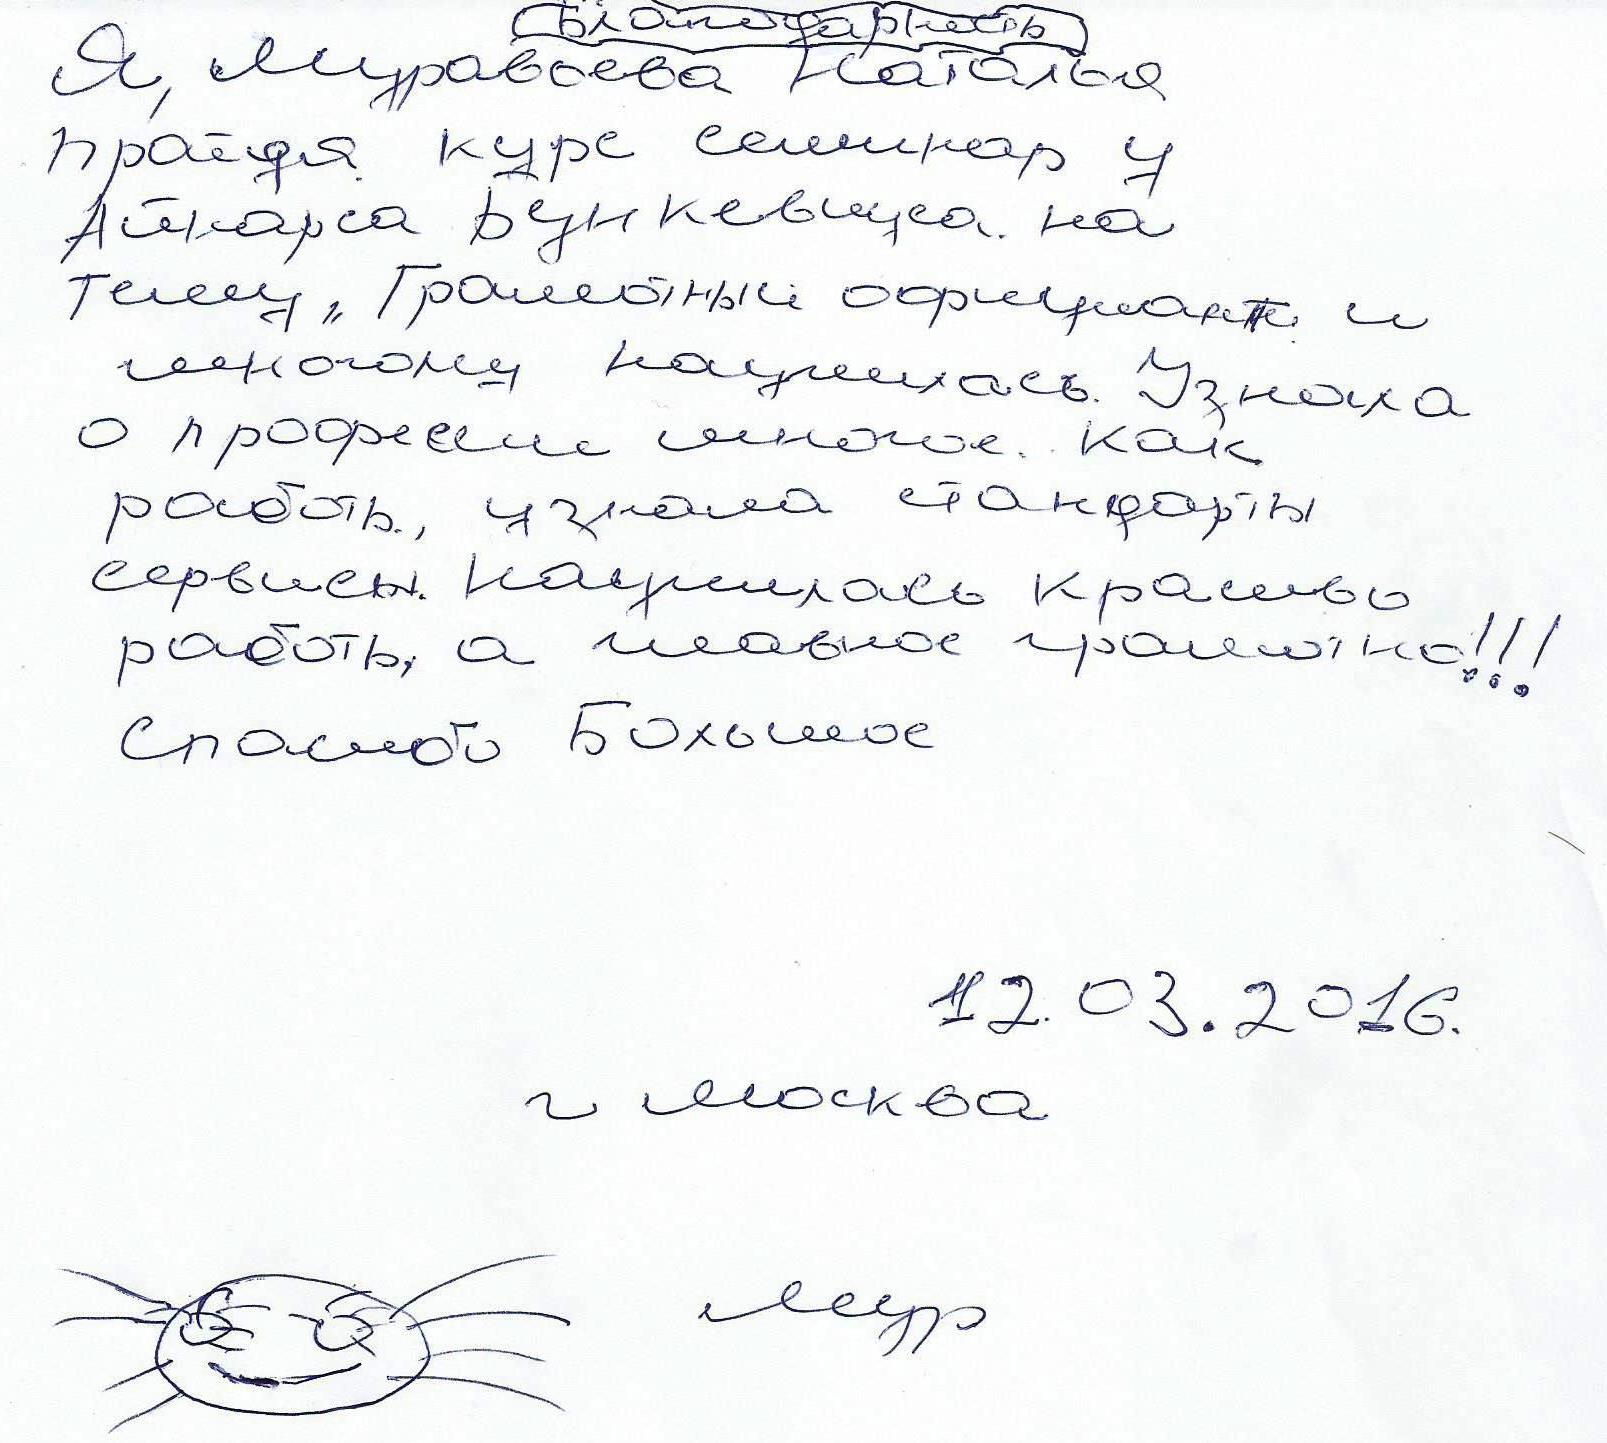 Благодарность
Я, Муравьева Наталья
прайдя курс семинар у
Айнарса Бункевица. на
тему „Грамотный официант. и
многому научилась. Узнала
о професси многое. Как
работь, узнала стандарты
сервисы. Научилась красиво
работь, а главное грамотно!!!
Спасибо Большое
12.03.2016.
г Москва
Мур